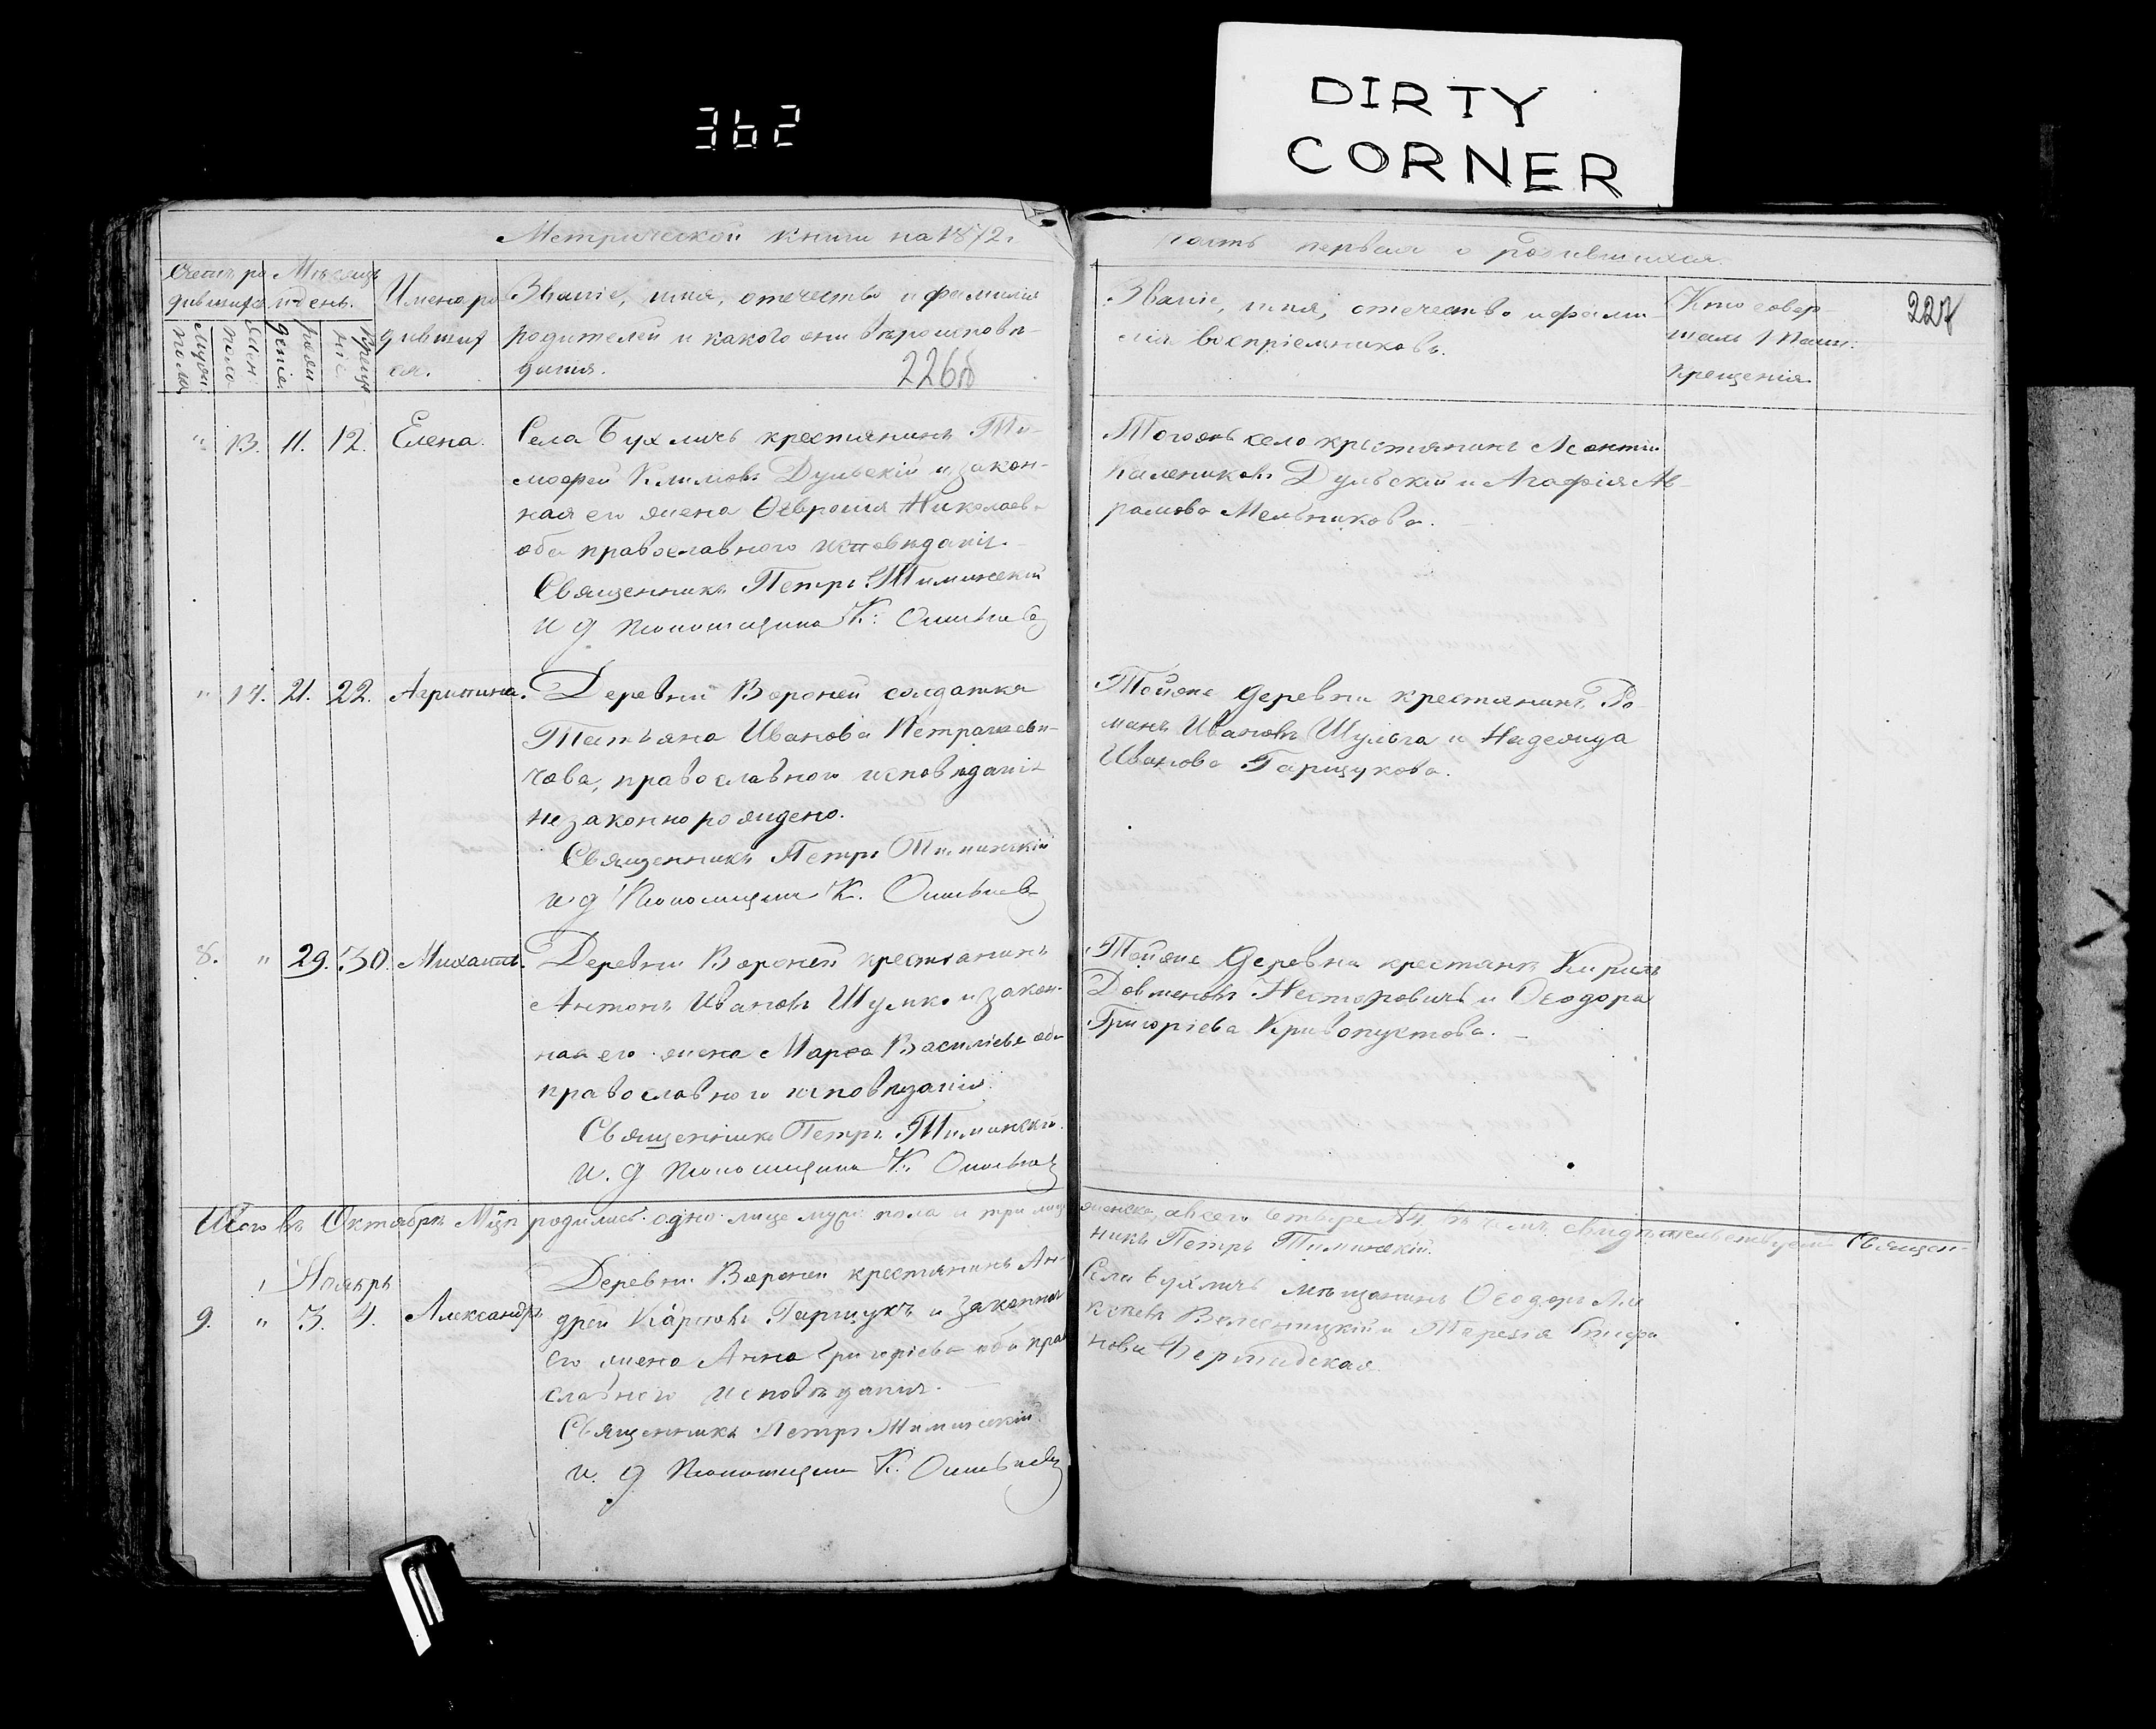 362
DIRTY
CORNER
Метрической книги на 1872.
часть первая о родившихся.
Счетъ ро
дившихся
Мѣсяцъ
и день.
Имена ро
дивших
ся.
Званіе, имя, отечество и фамилія
родителей и какого они вѣроисповѣ-
данія.
226об
Муж:
пола
Жен:
пола
рож
деніе.
Креще
ніе
Званіе, имя, отечество и фами-
лія воспріемниковъ.
Кто совер
шалъ Таин:
крещенія
227
" 13. 11. 12. Елена.
Села Бухличъ крестянинъ Ти-
мофей Климовъ Дульскій и закон-
ная его жена Февронія Николаев.
оба православного исповѣданія.
Священникъ Петръ Тиминскій
и д Пономаря К.
Тогожъ село крестянинъ Леонтій
Калениковъ Дульскій и Агафія Ав-
рамова Мельникова.
" 14. 21. 22. Агрипина.
Деревни Вороней солдатка
Татьяна Иванова Петрашеви-
чова, православного исповѣданія
незаконнорождено.
Священникъ Петръ Тиминскій
и д К.
Тойже деревни крестянинъ Ро-
манъ Ивановъ Шульга и Надежда
Иванова Гарщукова.
8. " 29. 30. Михаилъ.
Деревни Вороней крестянинъ
Антонъ Ивановъ Шумко и закон-
ная его жена Марѳа Василіева оба
православного исповѣданія
Священникъ Петръ Тиминскій
и. д К.
Тойже деревни крестянинъ Кирилъ
Довменовъ Несторовичъ и Ѳеодора
Григоріева Кривопустова.
Итого въ Октябрѣ Мцѣ родились одно лице муж: пола и три лица
женска, а всего четыре №4. въ чемъ свидѣтельствуетъ Священ-
никъ Петръ Тиминскій.
Ноябрь
9. " 3. 4. Александръ
Деревни Вороней крестянинъ Ан-
дрей Карповъ Гарщукъ и законная
его жена Анна Григоріева оба право
славного исповѣданія.
Священникъ Петръ Тиминскій
и. д К.
Села Бухличъ мѣщанинъ Ѳеодоръ
и Терезія Стефа
нова